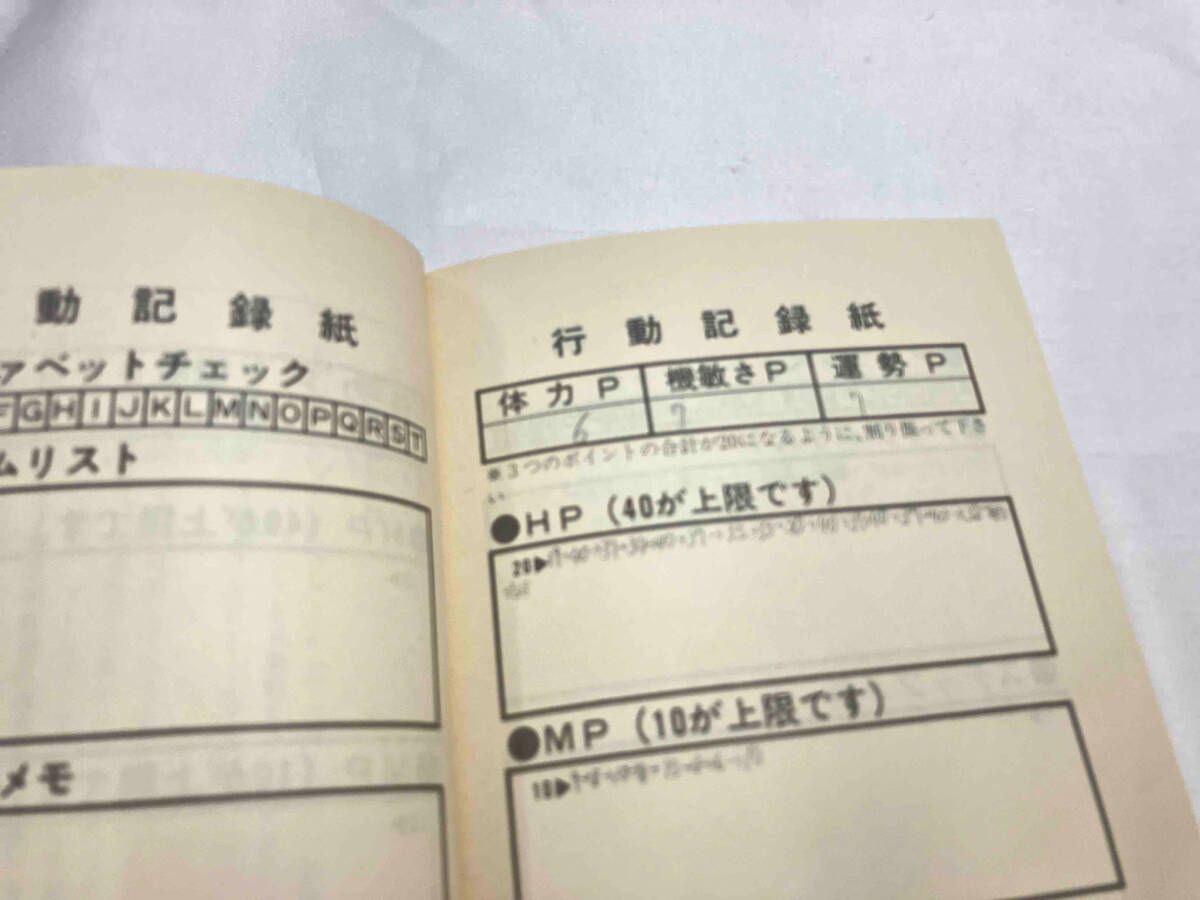 動記録紙
ァベットチェック
FGHIJKLMNOPQRST
ムリスト
メモ
行動記録紙
体力P 機敏さP 運勢P
6 7 7
※3つのポイントの合計が20になるように、割り振って下さ
い
●HP（40が上限です）
20▶
●MP（10が上限です）
10▶